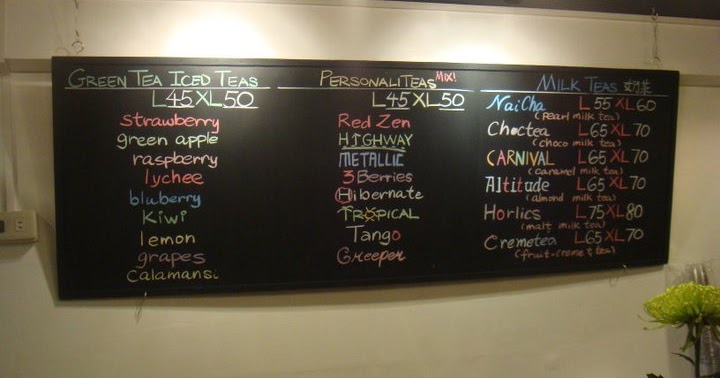 GREEN TEA ICED TEAS
L45 XL50
strawberry
green apple
raspberry
lychee
bluberry
Kiwi
lemon
grapes
Calamansi
PERSONALITEAS MIX!
L45 XL50
Red Zen
HIGHWAY
METALLIC
3 Berries
Hibernate
TROPICAL
Tango
Creeper
MILK TEAS 奶茶
NaiCha L55 XL60
(pearl milk tea)
Choctea L65 XL70
(choco milk tea)
CARNIVAL L65 XL70
(caramel milk tea)
Altitude L65 XL70
(almond milk tea)
Horlics L75 XL80
(malt milk tea)
Cremetea L65 XL70